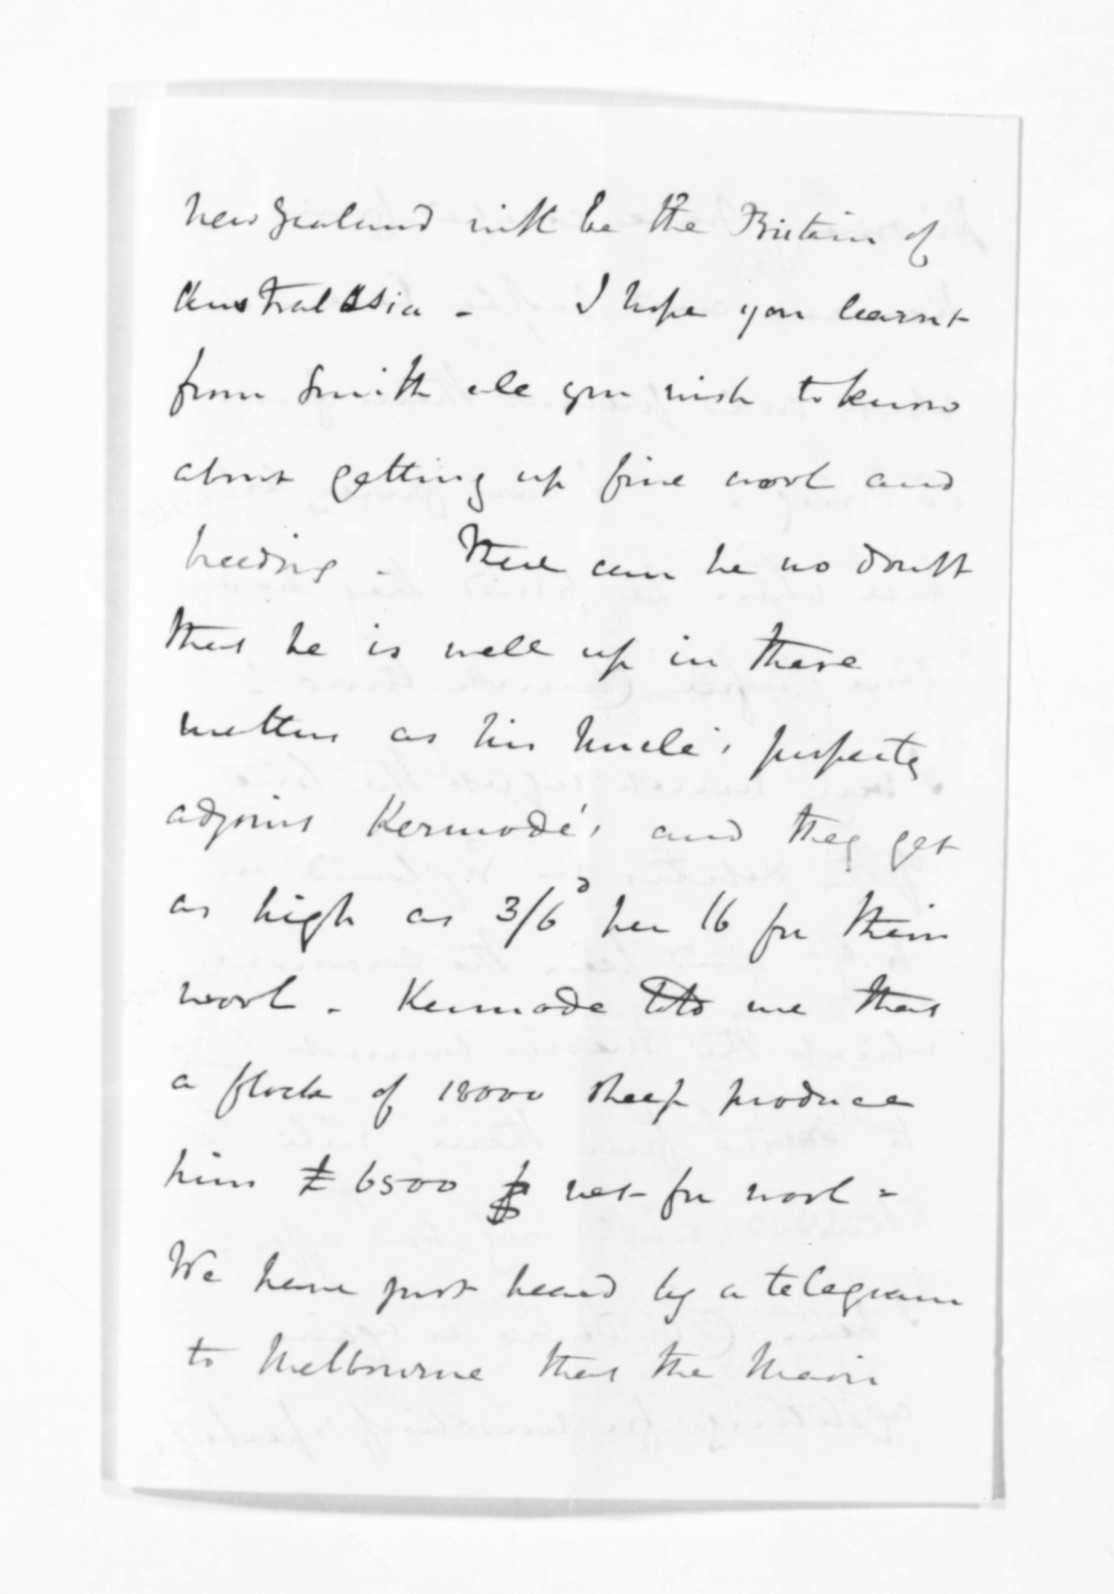 New Zealand will be the Britain of
Australasia - I hope you learnt
from Smith all you wish to know
about getting up fine wool and
breeding - There can be no doubt
that he is well up in these
matters as his Uncle's property
adjoins Kermode's and they get
as high as 3/6d per lb for their
wool - Kermode told me that
a flock of 18000 sheep produce
him £6500 net for wool -
We have just heard by a telegram
to Melbourne that the Maori